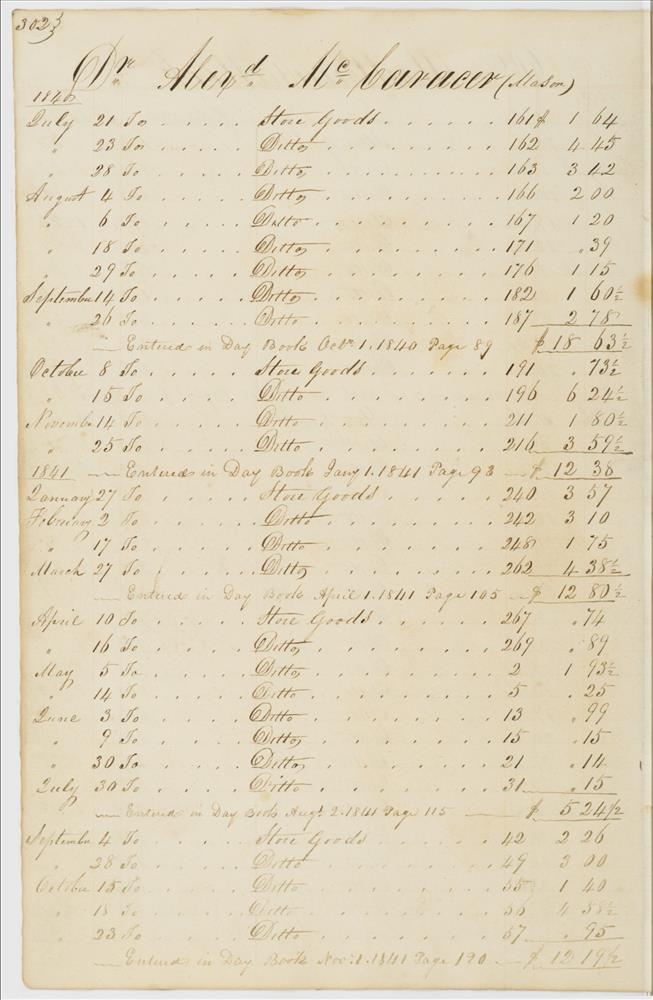 302
Dr Alexd Mc Caracer (Mason)
1840
July 21 To . . . . . Store Goods . . . . . . 161 $ 1 64
" 23 To . . . . . Ditto . . . . . . . . . 162 4 45
" 28 To . . . . . Ditto . . . . . . . . . 163 3 42
August 4 To . . . . . Ditto . . . . . . . . . 166 2 00
" 6 To . . . . . Ditto . . . . . . . . . 167 1 20
" 18 To . . . . . Ditto . . . . . . . . . 171 . 39
" 29 To . . . . . Ditto . . . . . . . . . 176 1 15
September 14 To . . . . . Ditto . . . . . . . . . 182 1 60½
" 26 To . . . . . Ditto . . . . . . . . . 187 2 78
— Entered in Day Book Octr 1. 1840 Page 89 $ 18 63½
October 8 To . . . . . Store Goods . . . . . . 191 . 73½
" 15 To . . . . . Ditto . . . . . . . . . 196 6 24½
November 14 To . . . . . Ditto . . . . . . . . . 211 1 80½
" 25 To . . . . . Ditto . . . . . . . . . 216 3 59½
1841 — Entered in Day Book Jany 1. 1841 Page 93 — $ 12 38
January 27 To . . . . . Store Goods . . . . . . 240 3 57
February 2 To . . . . . Ditto . . . . . . . . . 242 3 10
" 17 To . . . . . Ditto . . . . . . . . . 248 1 75
March 27 To . . . . . Ditto . . . . . . . . . 262 4 38½
— Entered in Day Book April 1. 1841 Page 105 — $ 12 80½
April 10 To . . . . . Store Goods . . . . . . 267 . 74
" 16 To . . . . . Ditto . . . . . . . . . 269 . 89
May 5 To . . . . . Ditto . . . . . . . . . 2 1 93½
" 14 To . . . . . Ditto . . . . . . . . . 5 . 25
June 3 To . . . . . Ditto . . . . . . . . . 13 . 99
" 9 To . . . . . Ditto . . . . . . . . . 15 . 15
" 30 To . . . . . Ditto . . . . . . . . . 21 . 14
July 30 To . . . . . Ditto . . . . . . . . . 31 . 15
— Entered in Day Book Augt 2. 1841 Page 115 — $ 5 24½
September 4 To . . . . . Store Goods . . . . . . 42 2 26
" 28 To . . . . . Ditto . . . . . . . . . 49 3 00
October 15 To . . . . . Ditto . . . . . . . . . 55 1 40
" 18 To . . . . . Ditto . . . . . . . . . 56 4 58½
" 23 To . . . . . Ditto . . . . . . . . . 57 . 95
— Entered in Day Book Novr 1. 1841 Page 120 — $ 12 19½